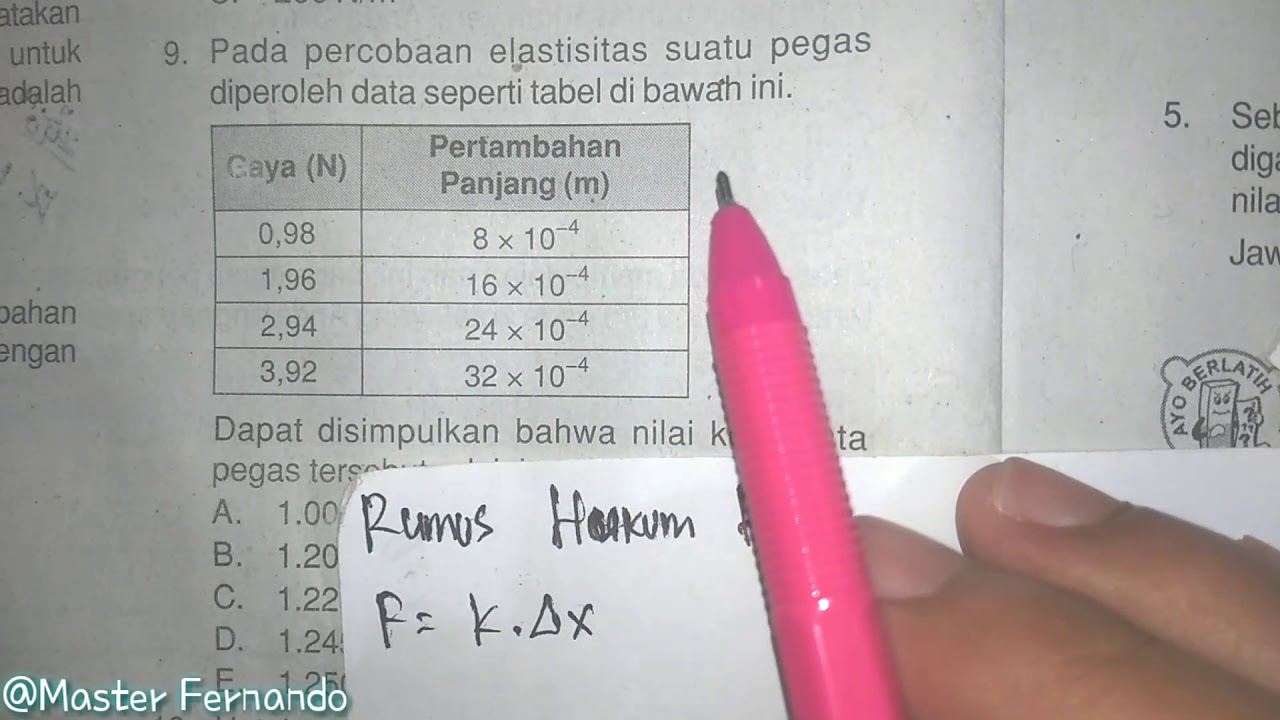 atakan
untuk
adalah
9. Pada percobaan elastisitas suatu pegas
diperoleh data seperti tabel di bawah ini.
Gaya (N) Pertambahan Panjang (m)
0,98 8 × 10⁻⁴
1,96 16 × 10⁻⁴
2,94 24 × 10⁻⁴
3,92 32 × 10⁻⁴
Dapat disimpulkan bahwa nilai
pegas
A. 1.00
B. 1.20
C. 1.22
D. 1.24
E. 1.25
Rumus Hukum
F = k . Δx
bahan
engan
5. Seb
diga
nila
Jaw
AYO BERLATIH
@Master Fernando